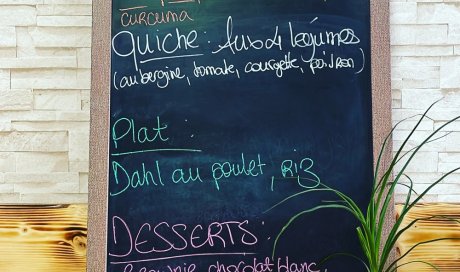 curcuma
Quiche : Aux 4 légumes
(aubergine, tomate, courgette, poivron)
Plat :
Dahl au poulet, riz
DESSERTS :
Brownie chocolat blanc,